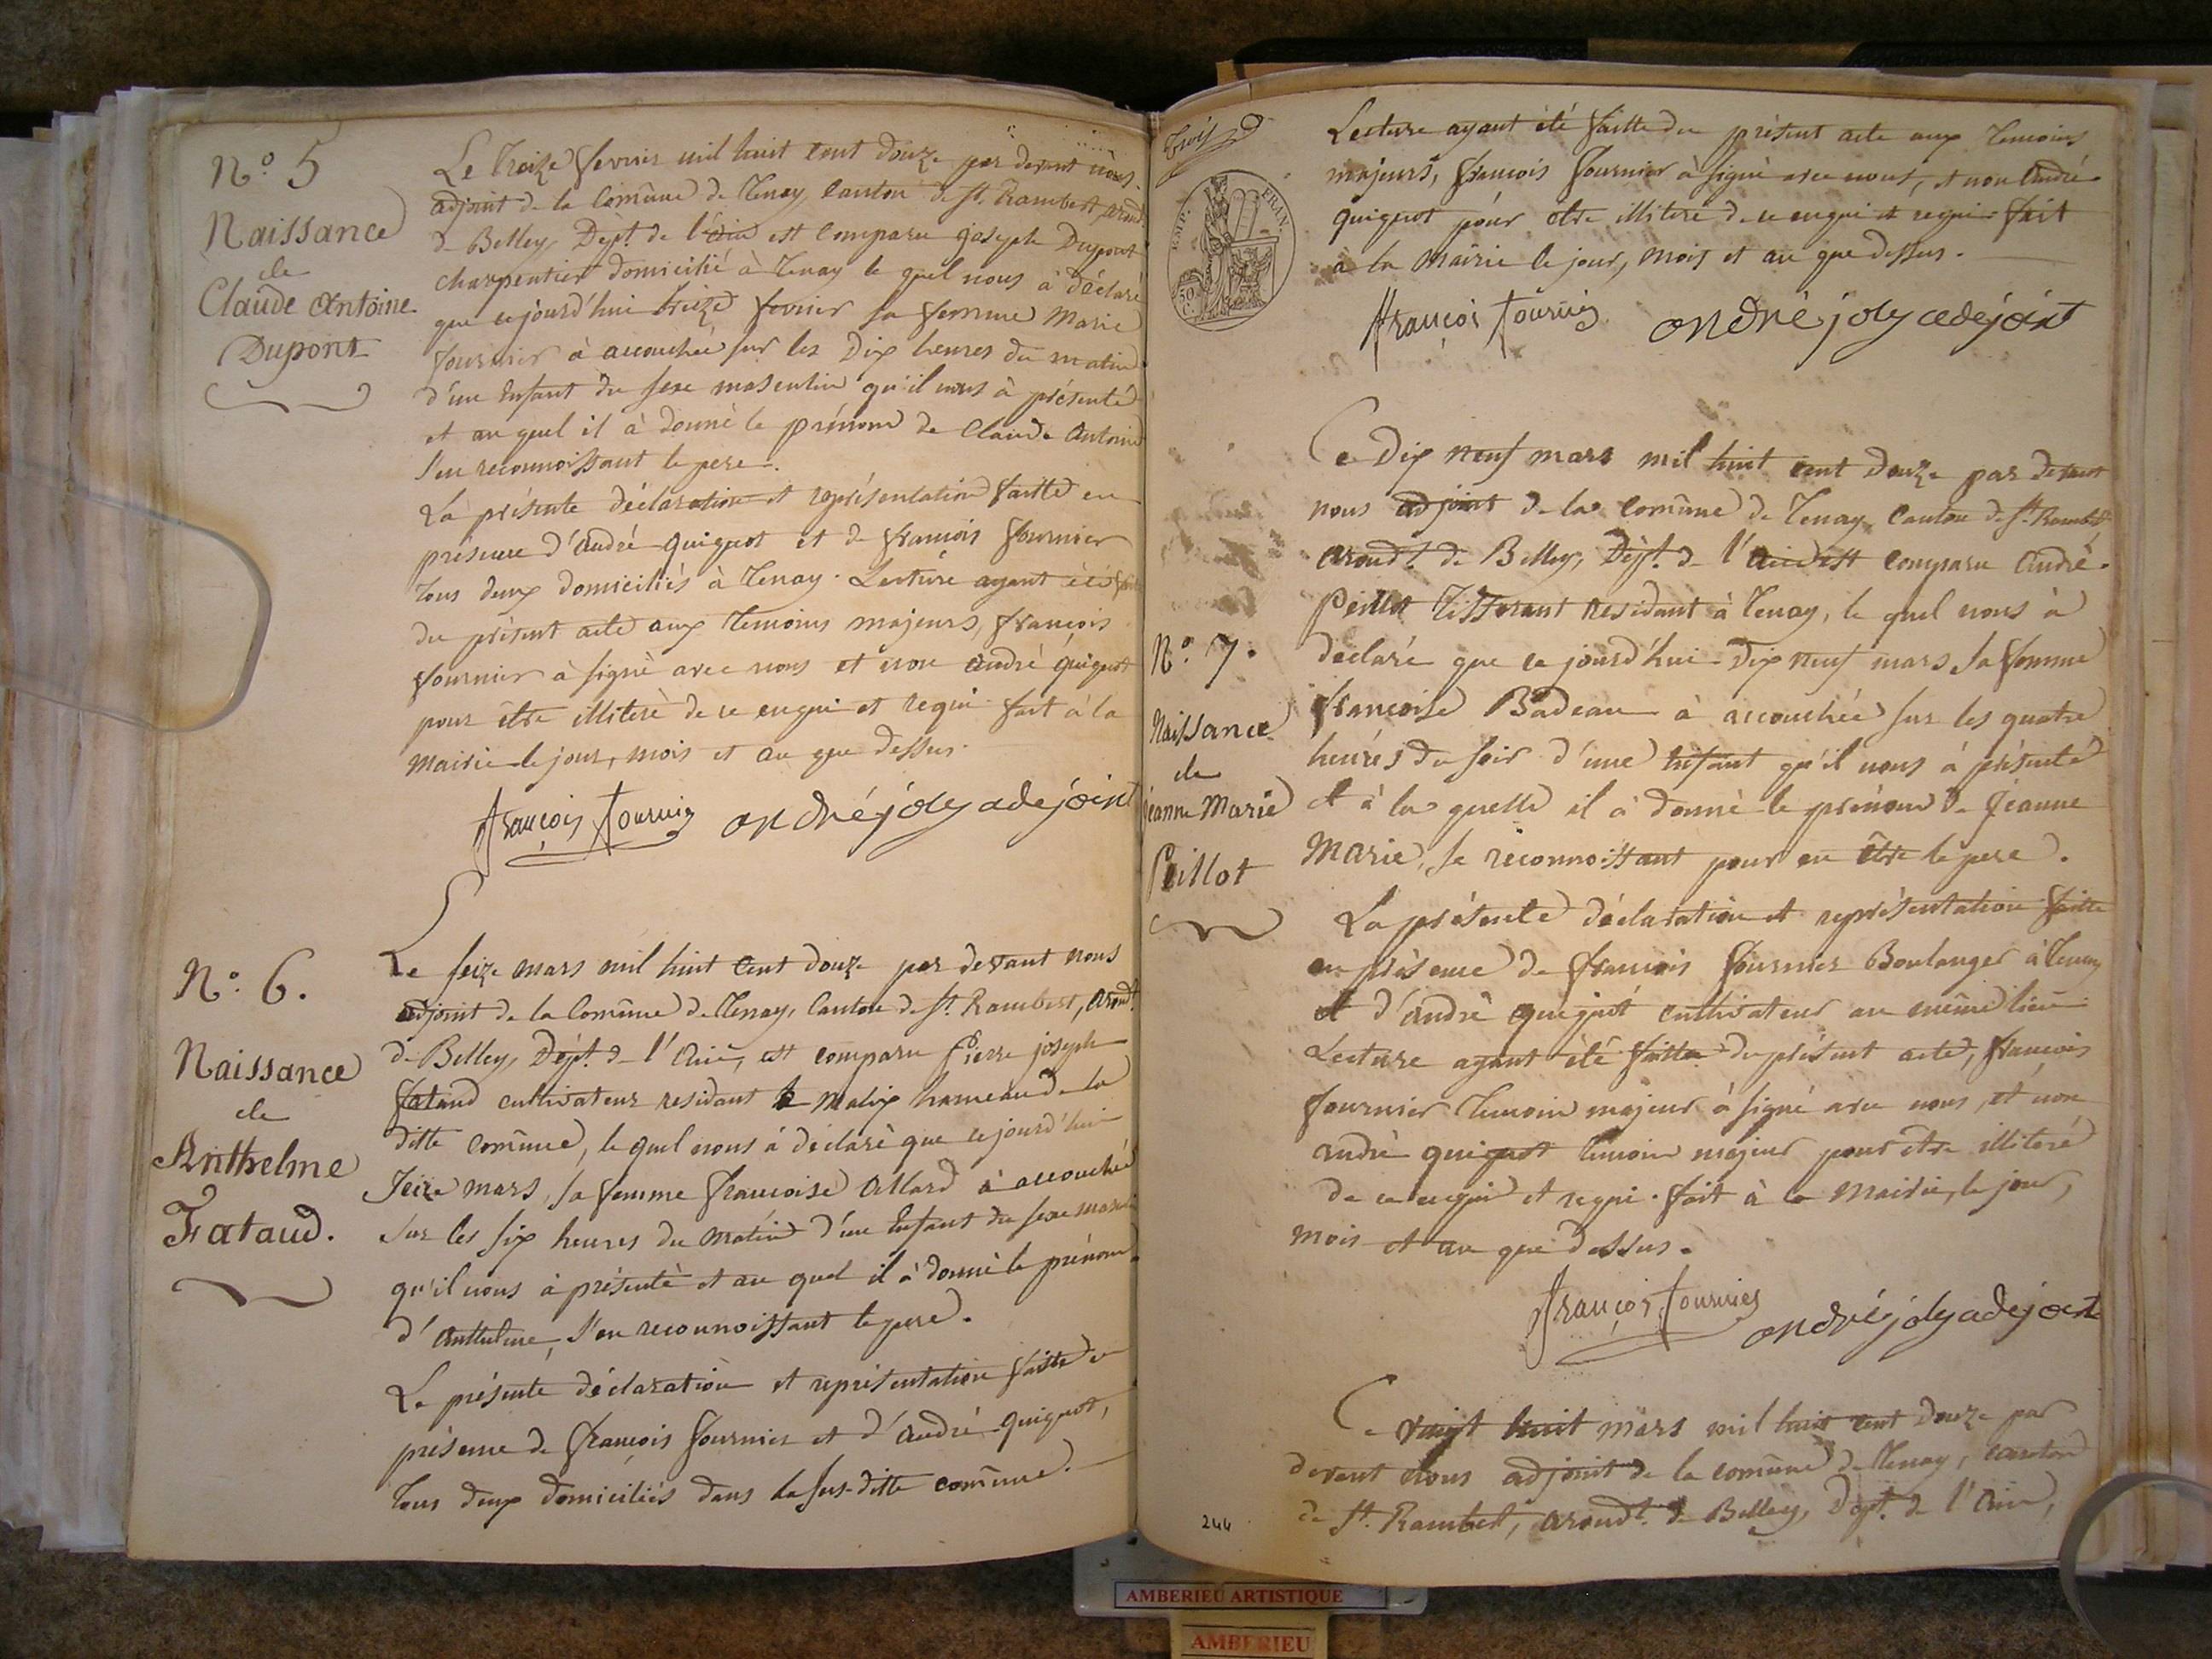 N.o 5
Naissance
de
Claude Antoine
Dupont
Le treize fevrier mil huit cent douze par devant nous
adjoint de la comune de Tenay, canton de St. Rambert, arond.t
de Belley, Dépt. de l'ain est comparu joseph Dupont
charpentier domicilié à Tenay le quel nous à déclaré
que cejourd'hui treize fevrier sa femme Marie
fournier à accouchée sur les Dix heures du matin
d'un Enfant du sexe masculin qu'il nous à présenté
et au quel il à donné le prénom de Claude Antoine
s'en reconnoissant le pere.
La présente déclaration et représentation faitte en
présence d'andré quiguot et de françois fournier
tous deux domiciliés à Tenay. Lecture ayant été
du présent acte aux temoins majeurs, françois
fournier à signé avec nous et non andré quiguot
pour être illiteré de ce enqui et requi. fait à la
Mairie le jour, mois et an que dessus.
françois fournier andré joly adejoint
N.o 6.
Naissance
de
Anthelme
Fataud.
Le seize mars mil huit cent douze par devant nous
adjoint de la Comune de Tenay, Canton de St. Rambert, arond.t
de Belley, Dépt. de l'Ain, est comparu Pierre joseph
fataud cultivateur residant à Malix hameau de la
ditte comune, le quel nous à déclaré que cejourd'hui
seize mars, sa femme françoise Allard à accouchée
sur les six heures du matin d'un Enfant du sexe
qu'il nous à présenté et au quel il à donné le prénom
d'anthelme, s'en reconnoissant le pere.
La présente déclaration et représentation faitte en
présence de françois fournier et d'andré quiguot,
tous deux domiciliés dans la sus-ditte comune.
Trois
EMP. FRAN.
50 C.
Lecture ayant été faitte du présent acte aux temoins
majeurs, françois fournier à signé avec nous, et non André
quiguot pour être illiteré de ce enqui et requi fait
à la Mairie le jour, mois et an que dessus.
françois fournier andré joly adejoint
N.o 7.
Naissance
de
jeanne Marie
Peillot
Ce Dix neuf mars mil huit cent douze par devant
nous adjoint de la comune de Tenay, Canton de St. Rambert,
arond.t de Belley, Dépt. de l'Ain est comparu André
Peillot tisserant residant à Tenay, le quel nous à
declaré que ce jourd'hui Dix neuf mars sa femme
françoise Badeau à accouchée sur les quatre
heures du soir d'une Enfant qu'il nous à présenté
et à la quelle il à donné le prénom de Jeanne
Marie, se reconnoissant pour en être le pere.
La présente déclaration et représentation faitte
en présence de françois fournier Boulanger à Tenay
et d'andré quiguot cultivateur au même lieu
Lecture ayant été faitte du présent acte, françois
fournier temoin majeur à signé avec nous, et non
andré quiguot temoin majeur pour être illiteré
de ce enqui et requi. fait à la Mairie, le jour,
mois et an que dessus.
françois fournier andré joly adejoint
Ce vingt huit mars mil huit cent douze par
devant nous adjoint de la comune de Tenay, canton
de St. Rambert, arond.t de Belley, Dépt. de l'Ain,
244
AMBERIEU ARTISTIQUE
AMBERIEU